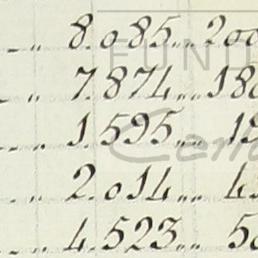 „ 8.085 „ 200
„ 7.874 „ 18
„ 1.595 „ 1
„ 2.014 „ 4
„ 4.523 „ 5